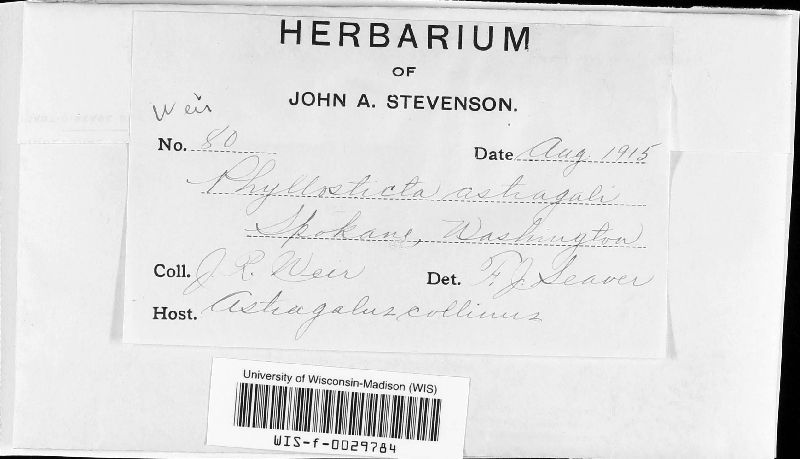 HERBARIUM
OF
JOHN A. STEVENSON.
Weir
No. 80 Date Aug. 1915
Phyllosticta astragali
Spokane, Washington
Coll. J. R. Weir Det. F. J. Seaver
Host. Astragalus collinus
University of Wisconsin-Madison (WIS)
WIS-f-0029784